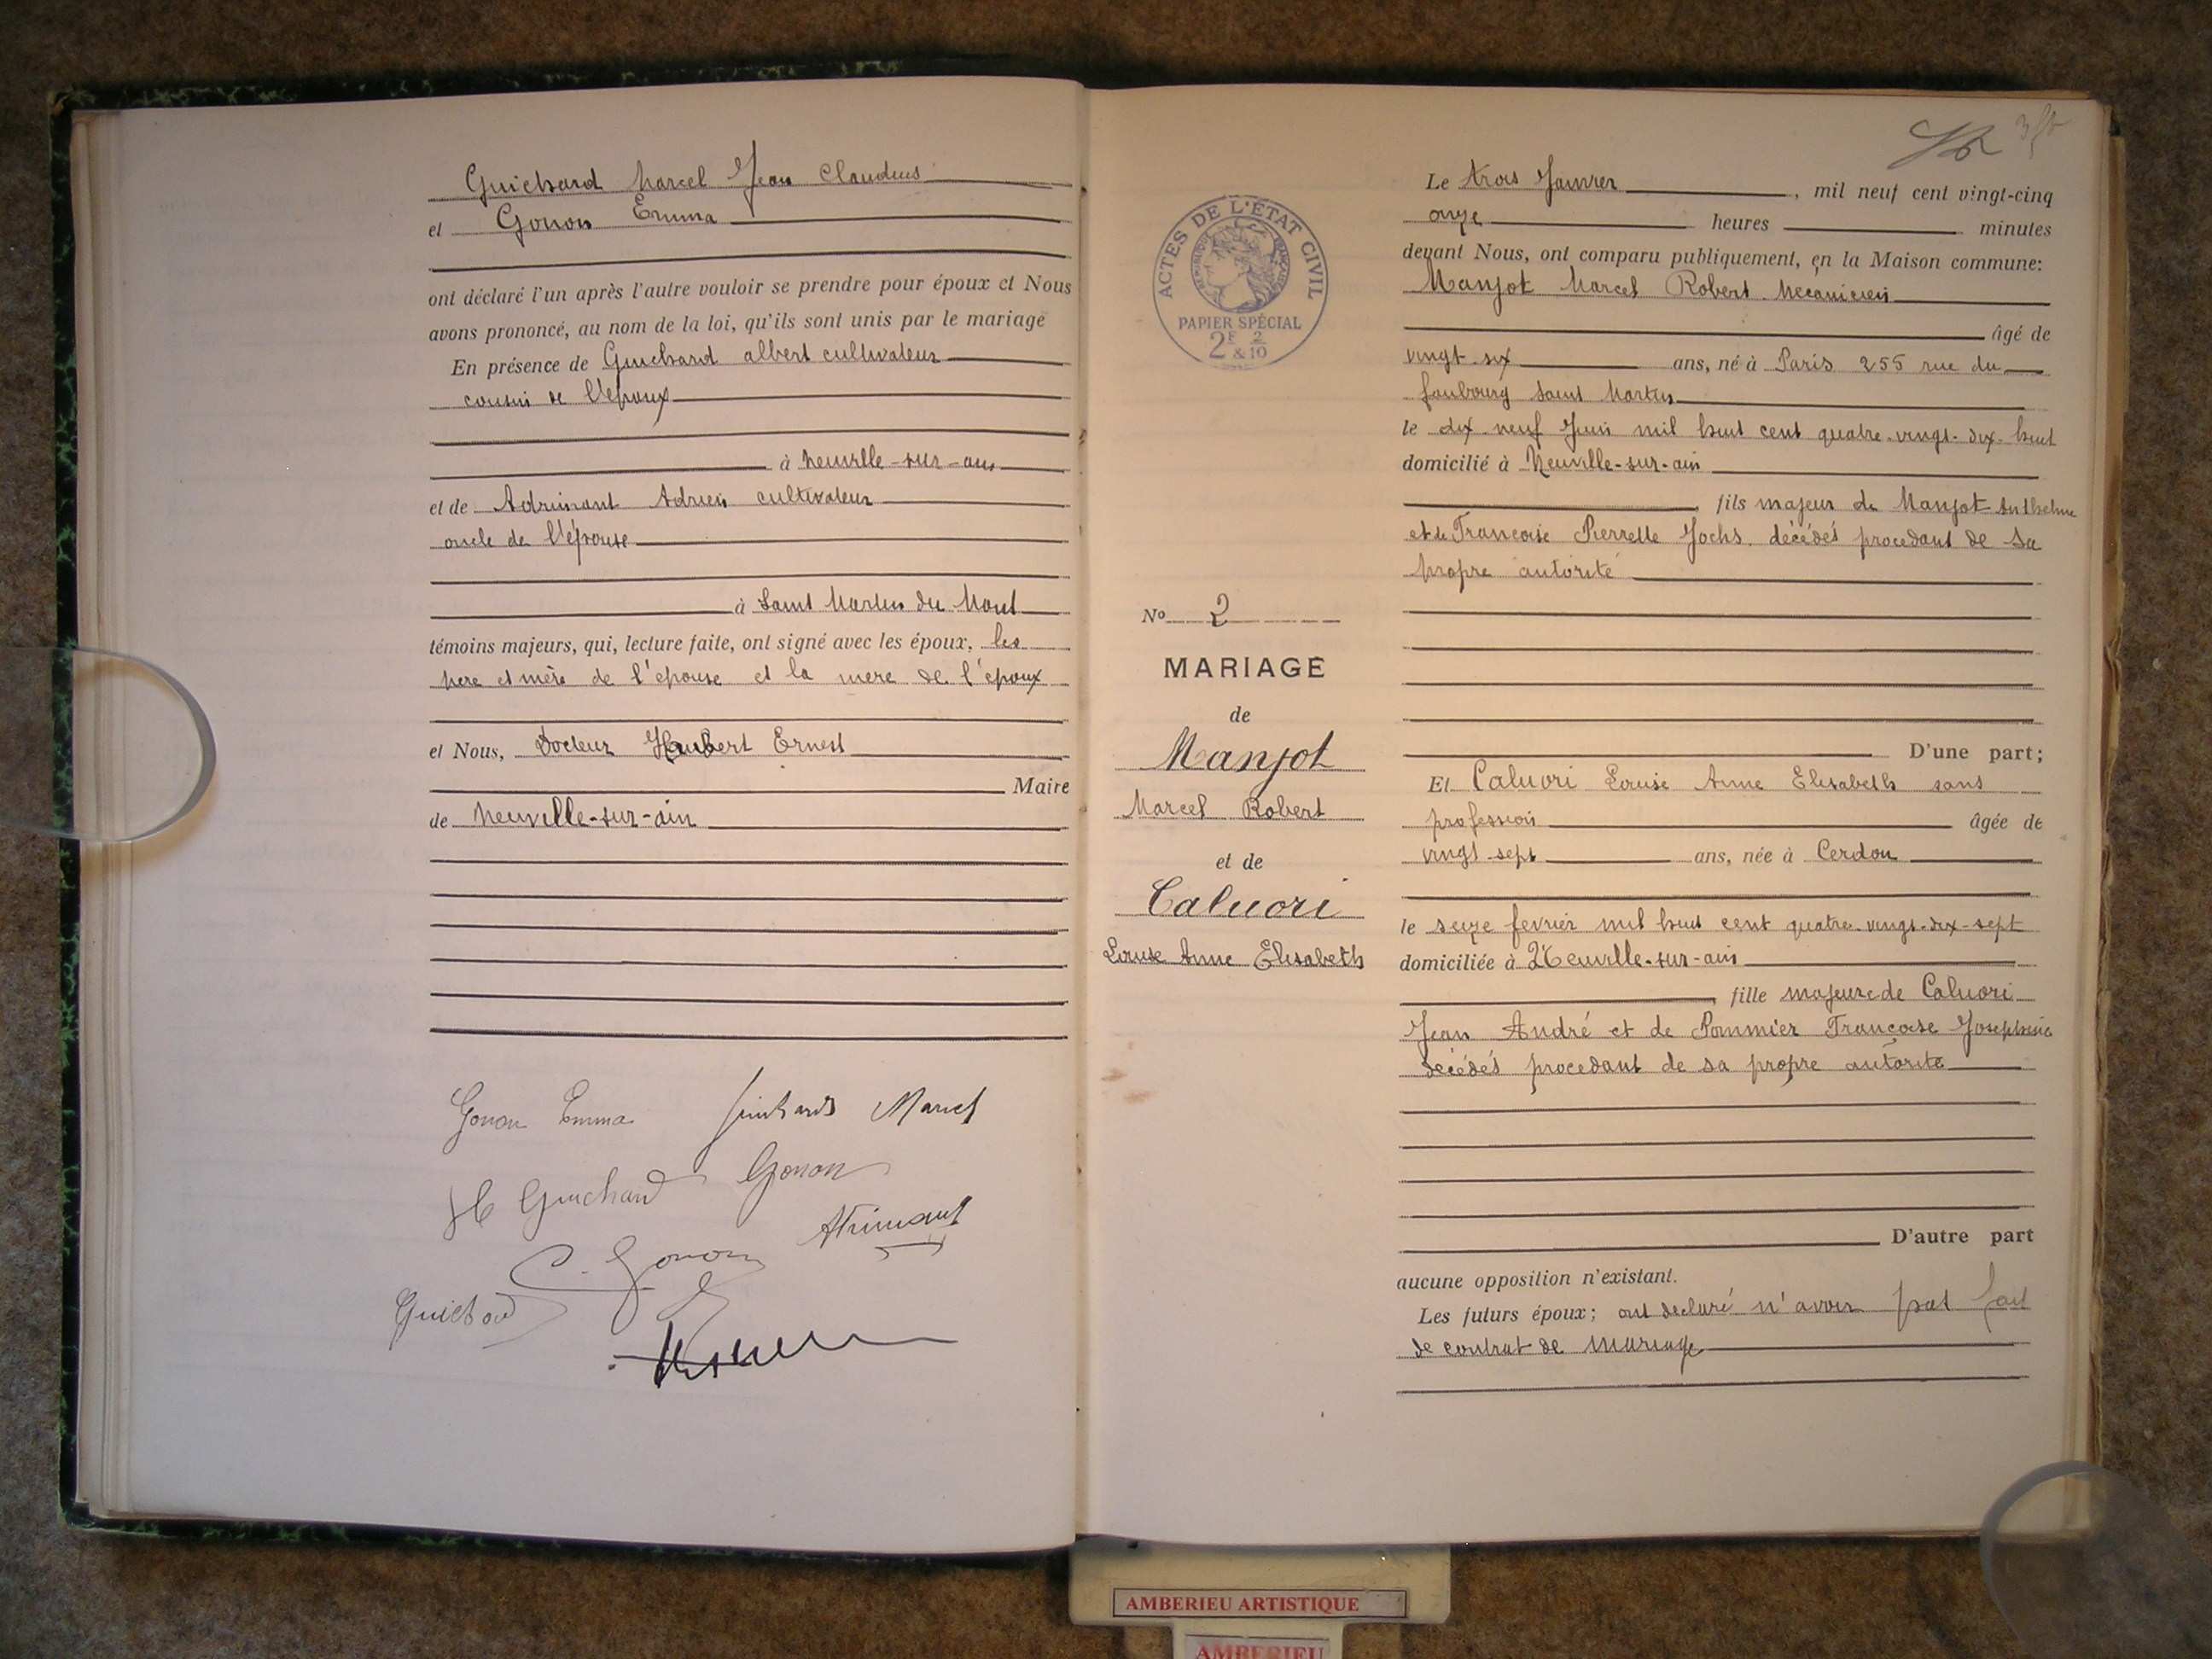 Guichard Marcel Jean Claudius
et Gonon Emma
ont déclaré l'un après l'autre vouloir se prendre pour époux et Nous
avons prononcé, au nom de la loi, qu'ils sont unis par le mariage
En présence de Guichard albert cultivateur
cousin de l'époux
à Neuville-sur-ain
et de Adrimant Adrien cultivateur
oncle de l'épouse
à Saint Martin du Mont
témoins majeurs, qui, lecture faite, ont signé avec les époux, les
père et mère de l'épouse et la mere de l'époux
et Nous, Docteur Hubert Ernest
Maire
de Neuville-sur-ain
Gonon Emma Guichard Marcel
Guichard Gonon
C. Gonon
Guichard
ACTES DE L'ÉTAT CIVIL
PAPIER SPÉCIAL
2F 2
& 10
No 2
MARIAGE
de
Manjot
Marcel Robert
et de
Caluori
Louise Anne Elisabeth
Le trois Janvier, mil neuf cent vingt-cinq
onze heures minutes
devant Nous, ont comparu publiquement, en la Maison commune:
Manjot Marcel Robert mécanicien
âgé de
vingt-six ans, né à Paris 255 rue du
faubourg Saint Martin
le dix-neuf Juin mil huit cent quatre-vingt-dix-huit
domicilié à Neuville-sur-ain
fils majeur de Manjot Anthelme
et de Francoise Pierrette Jochs décédés procedant de sa
propre autorité
D'une part;
Et Caluori Louise Anne Elisabeth sans
profession âgée de
vingt-sept ans, née à Cerdon
le seize fevrier mil huit cent quatre-vingt-dix-sept
domiciliée à Neuville-sur-ain
fille majeure de Caluori
Jean André et de Pommier Francoise Josephine
décédés procedant de sa propre autorité
D'autre part
aucune opposition n'existant.
Les futurs époux; ont declaré n'avoir pas fait
de contrat de mariage
AMBERIEU ARTISTIQUE
AMBERIEU